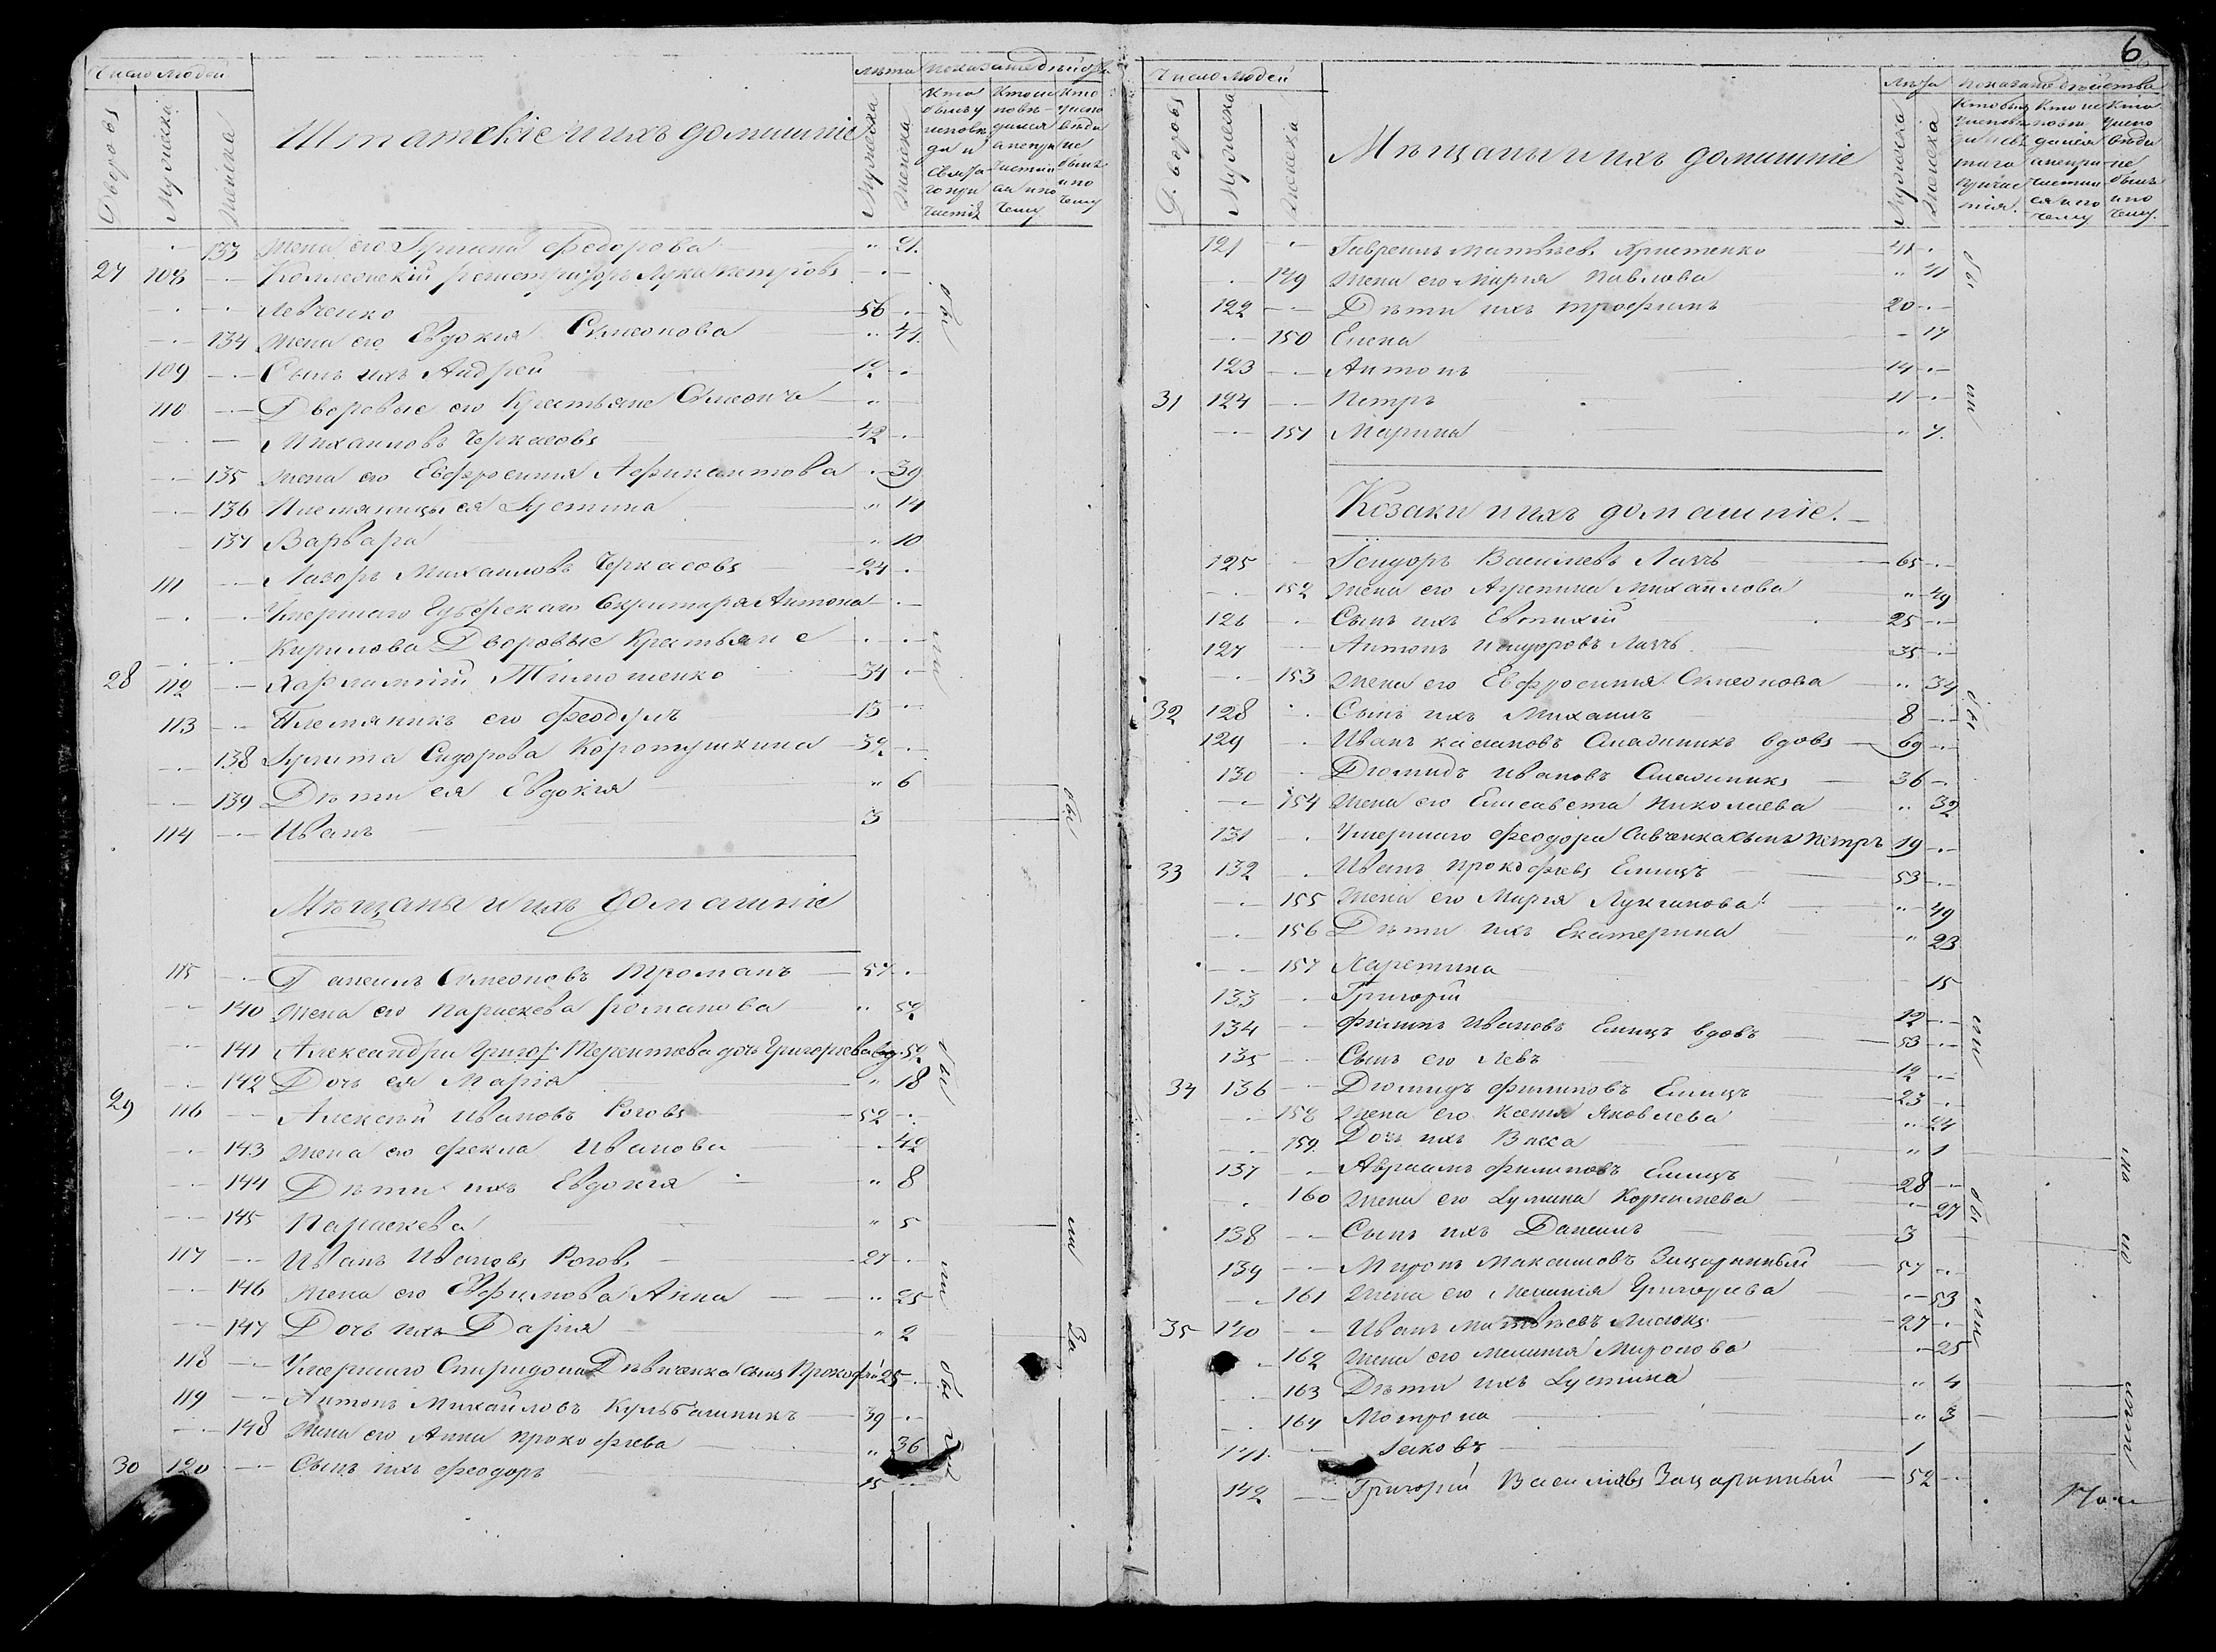 6
Число людей
Лѣта
Дворовъ
Мужеска
Женска
Статскіе и ихъ домашніе
Мужеска
Женска
Кто былъ у исповѣди и свята го при
Кто исповѣдался а непричастился и по чему
Кто у исповѣди не былъ и по чему
133 Жена его Федорова 21
27 108 Коллежскій регистраторъ Лука Петровъ
Левченко 56
134 Жена его Евдокія Симеонова 44
109 Сынъ ихъ Андрей 12
110 Дворовые его Крестьяне Симеонъ
Михаиловъ Черкасовъ 42
135 Жена его Евфросинія 39
136 Племянницы ея Устина 14
137 Варвара 10
111 Лазорь Михаиловъ Черкасовъ 24
Умершаго Губерскаго Секритаря Антона
Кирилова Дворовые Крестьяне
28 112 Харлампій Тимошенко 34
113 Племяникъ его Феодулъ 13
138 Сидорова Коротушкина 32
139 Дѣти ея Евдокія 6
114 Иванъ 3
Мѣщаны и ихъ домашніе
115 Даніилъ Симеоновъ Троманъ 57
140 Жена его Параскева Романова 52
141 Александра Григор: Терентіева дочь Григоріева вд. 52
142 Дочь ея Марія 18
29 116 Алексѣй Ивановъ Роговъ 52
143 Жена его Фекла Иванова 42
144 Дѣти ихъ Евдокія 8
145 Параскева 5
117 Иванъ Ивановъ Роговъ 27
146 Жена его Евфимова Анна 25
147 Дочь ихъ Дарія 2
118 Умершаго Спиридона Дѣвченка сынъ Прокофій 25
119 Антонъ Михайловъ Кульбашникъ 39
148 Жена его Анна Прокофіева 36
30 120 Сынъ ихъ Феодоръ 15
Число людей
Лѣта
Дворовъ
Мужеска
Женска
Мѣщаны и ихъ домашніе
Мужеска
Женска
121 Гавріилъ Матвѣевъ Христенко 41
149 Жена его Марія Павлова 41
122 Дѣти ихъ Трофимъ 20
150 Елена 17
123 Антонъ 14
31 124 Петръ 11
151 Марина 7
Козаки и ихъ домашніе.
125 Ісидоръ Василіевъ 65
152 Жена его Агрепина Михайлова 49
126 Сынъ ихъ Евтихій 25
127 Антонъ Исидоровъ 35
153 Жена его Евфросинія Симеонова 34
32 128 Сынъ ихъ Михаилъ 8
129 Иванъ вдовъ 69
130 Діомидъ Ивановъ 36
154 Жена его Елисавета Николаева 32
131 Умершаго Феодора Савченка сынъ Петръ 19
33 132 Иванъ Прокофіевъ Елицъ 53
155 Жена его Марія Лукіанова 49
156 Дѣти ихъ Екатерина 23
157 Харетина 15
133 Григорій 12
134 Филипъ Ивановъ Елицъ вдовъ 53
135 Сынъ его Левъ 12
34 136 Діомидъ Филиповъ Елицъ 23
158 Жена его Ксенія Яковлева 24
159 Дочь ихъ Васса 1
137 Авраамъ Филиповъ Елицъ 28
160 Жена его Корнилева 27
138 Сынъ ихъ Даніилъ 3
139 Миронъ Максимовъ Зацаринный 57
161 Жена его Меланія Григоріева 53
35 140 Иванъ Матвѣевъ 27
162 Жена его Меланія Миронова 25
163 Дѣти ихъ Устина 4
164 Мотрона 3
141 Іаковъ 1
142 Григорій Василіевъ Зацаринный 52